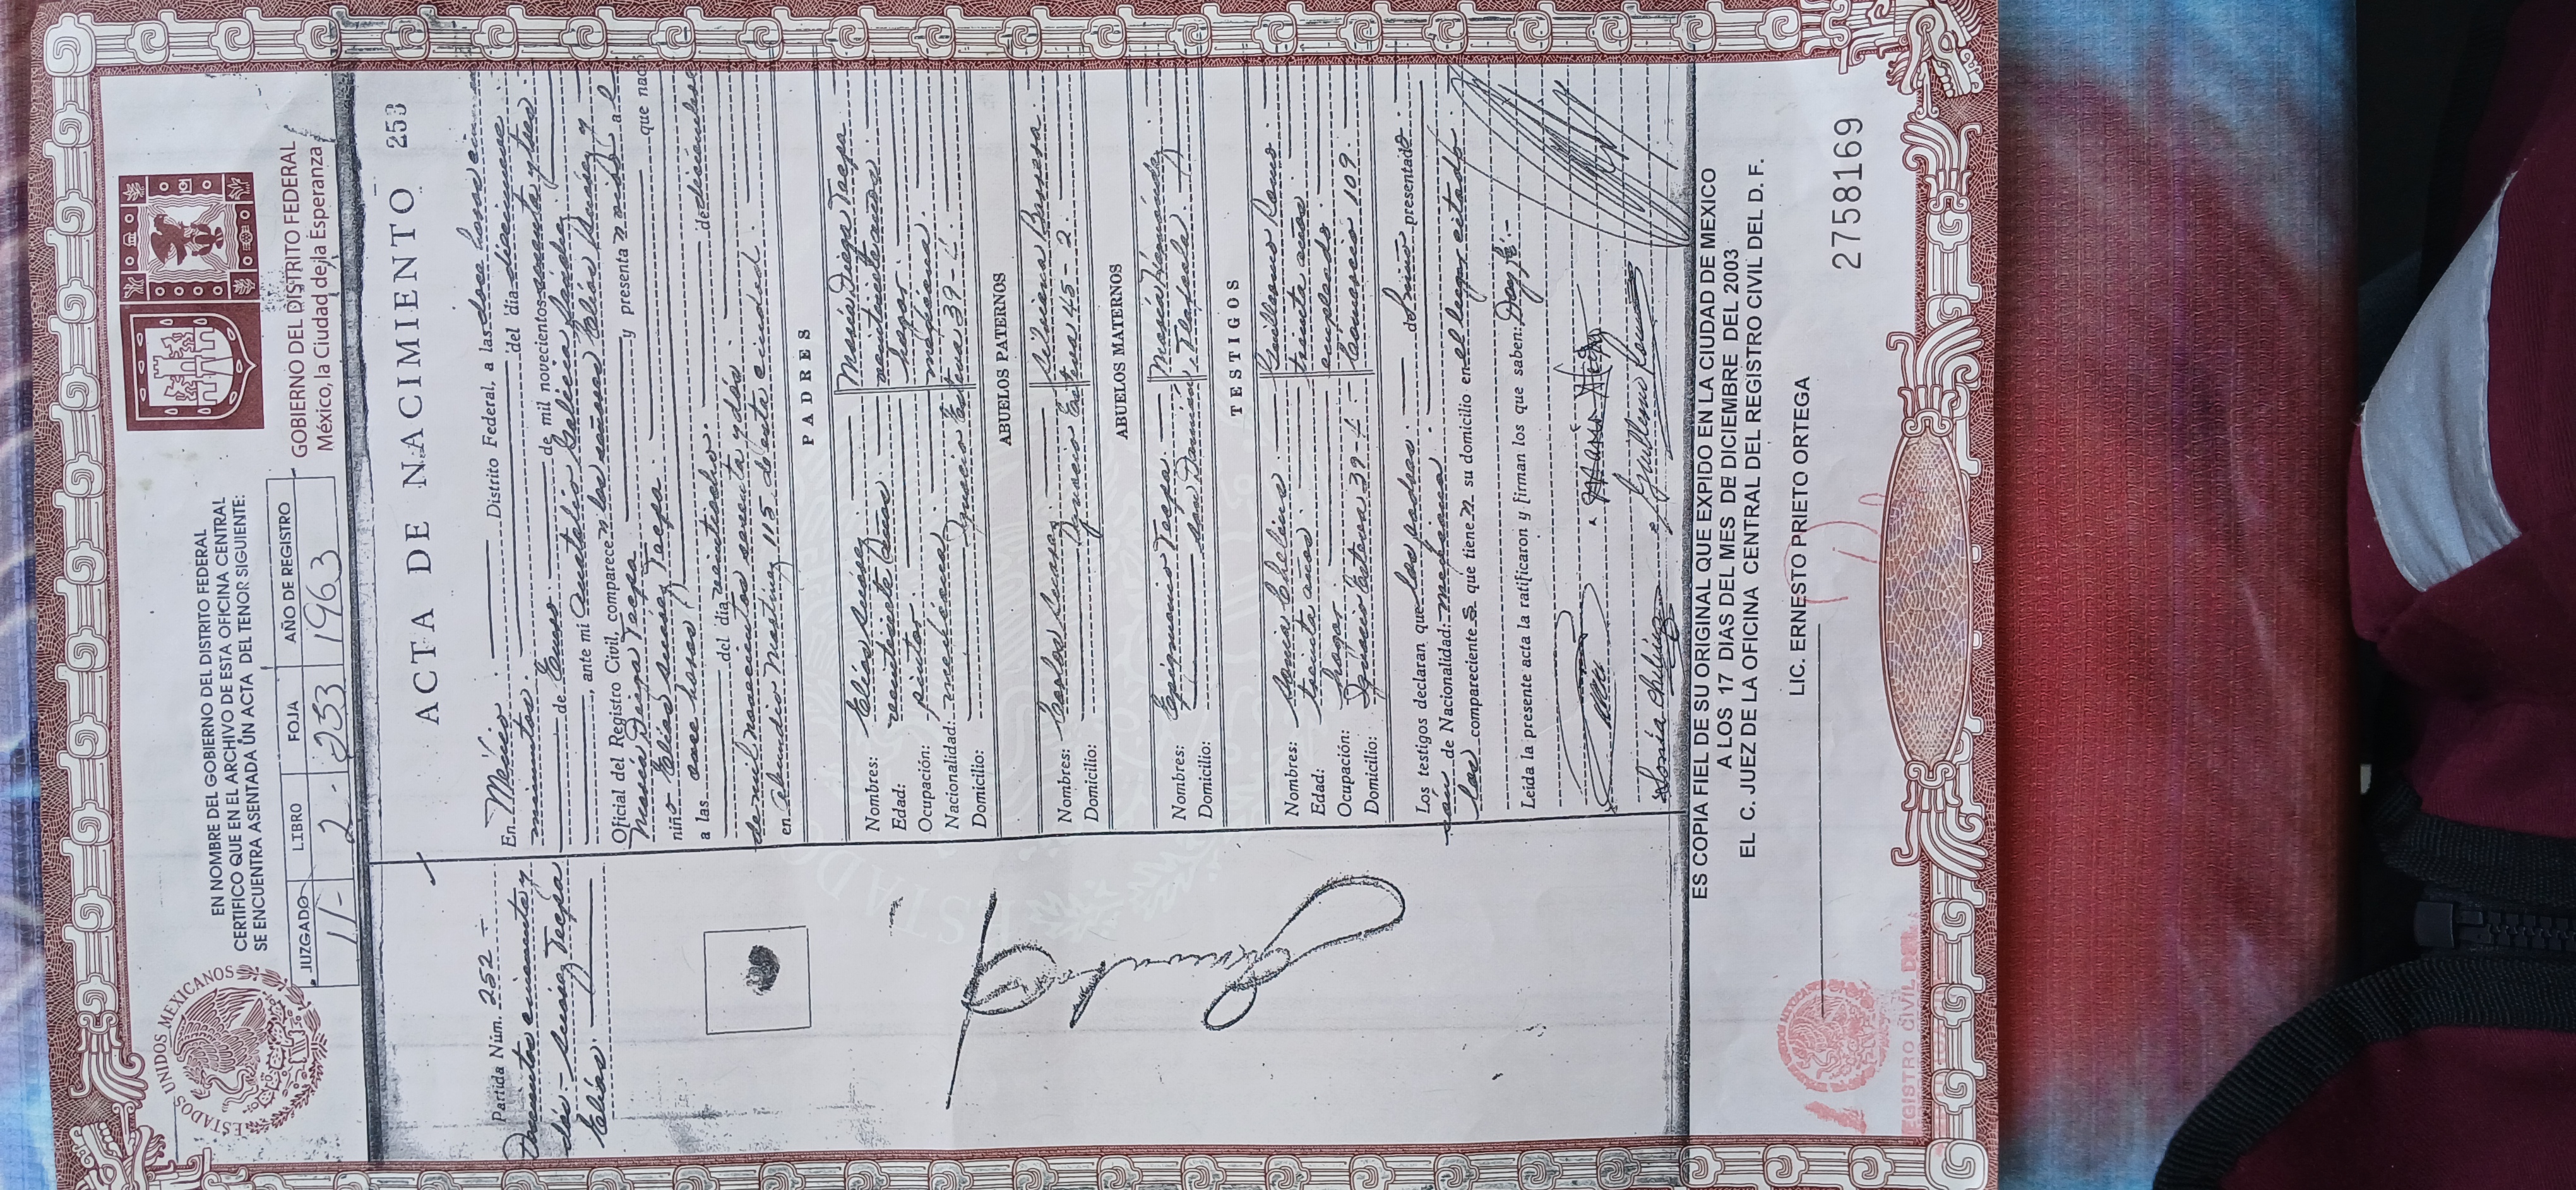 ESTADOS UNIDOS MEXICANOS
EN NOMBRE DEL GOBIERNO DEL DISTRITO FEDERAL
CERTIFICO QUE EN EL ARCHIVO DE ESTA OFICINA CENTRAL
SE ENCUENTRA ASENTADA UN ACTA DEL TENOR SIGUIENTE:
JUZGADO LIBRO FOJA AÑO DE REGISTRO
11- 2- 253 1963
GOBIERNO DEL DISTRITO FEDERAL
México, la Ciudad de la Esperanza
ACTA DE NACIMIENTO 253
Partida Núm. 252
Doscientos cincuenta y
dós - Suárez Tecpa
Elías.
En México. Distrito Federal, a las doce horas
minutos. del día diecinueve
de Enero. de mil novecientos sesenta y tres.
, ante mi
Oficial del Registro Civil, comparecen los señores Elías Suárez y
María Diega Tecpa y presenta n
niño Elías Suárez Tecpa. que nació
a las once horas del día veintiocho. de diciembre
de mil novecientos sesenta y dós.
en Abundio Martínez 115 de esta ciudad.
PADRES
Nombres: Elías Suárez María Diega Tecpa
Edad: veintisiete años veintisiete años
Ocupación: pintor. hogar.
Nacionalidad: mexicana. mexicana.
Domicilio:
ABUELOS PATERNOS
Nombres: Carlos Suárez
Domicilio: 45-2.
ABUELOS MATERNOS
Nombres: Epigmenio Tecpa. María Hernández
Domicilio: San Damián, Tlaxcala.
TESTIGOS
Nombres: Sonia Guillermo Romo.
Edad: treinta años. treinta años
Ocupación: hogar. empleado.
Domicilio: Comercio 109.
Los testigos declaran que los padres. del niño presentado.
són de Nacionalidad: mexicana.
los compareciente s. que tiene n su domicilio en el lugar citado.
Leída la presente acta la ratificaron y firman los que saben: Doy fé:-
ES COPIA FIEL DE SU ORIGINAL QUE EXPIDO EN LA CIUDAD DE MEXICO
A LOS 17 DIAS DEL MES DE DICIEMBRE DEL 2003
EL C. JUEZ DE LA OFICINA CENTRAL DEL REGISTRO CIVIL DEL D. F.
LIC. ERNESTO PRIETO ORTEGA
2758169
REGISTRO CIVIL DEL